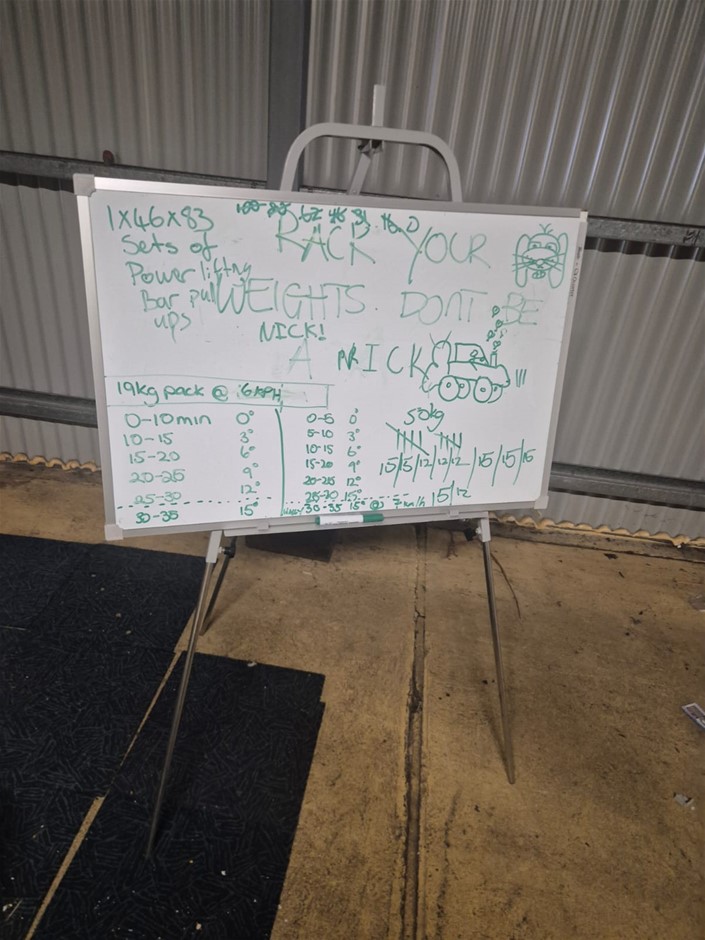 1X46X83
Sets of
Power lifting
Bar pull
ups
62 46 31
RACK YOUR
WEIGHTS. DONT BE
NICK!
A NICK
19kg pack @ 6KPH
0-10min 0°
10-15 3°
15-20 6°
20-25 9°
25-30 12°
30-35 15°
0-5 0°
5-10 3°
10-15 6°
15-20 9°
20-25 12°
25-30 15°
30-35 15° @ 7km/h
50kg
15/15/12/12/12/15/15/15
15/12